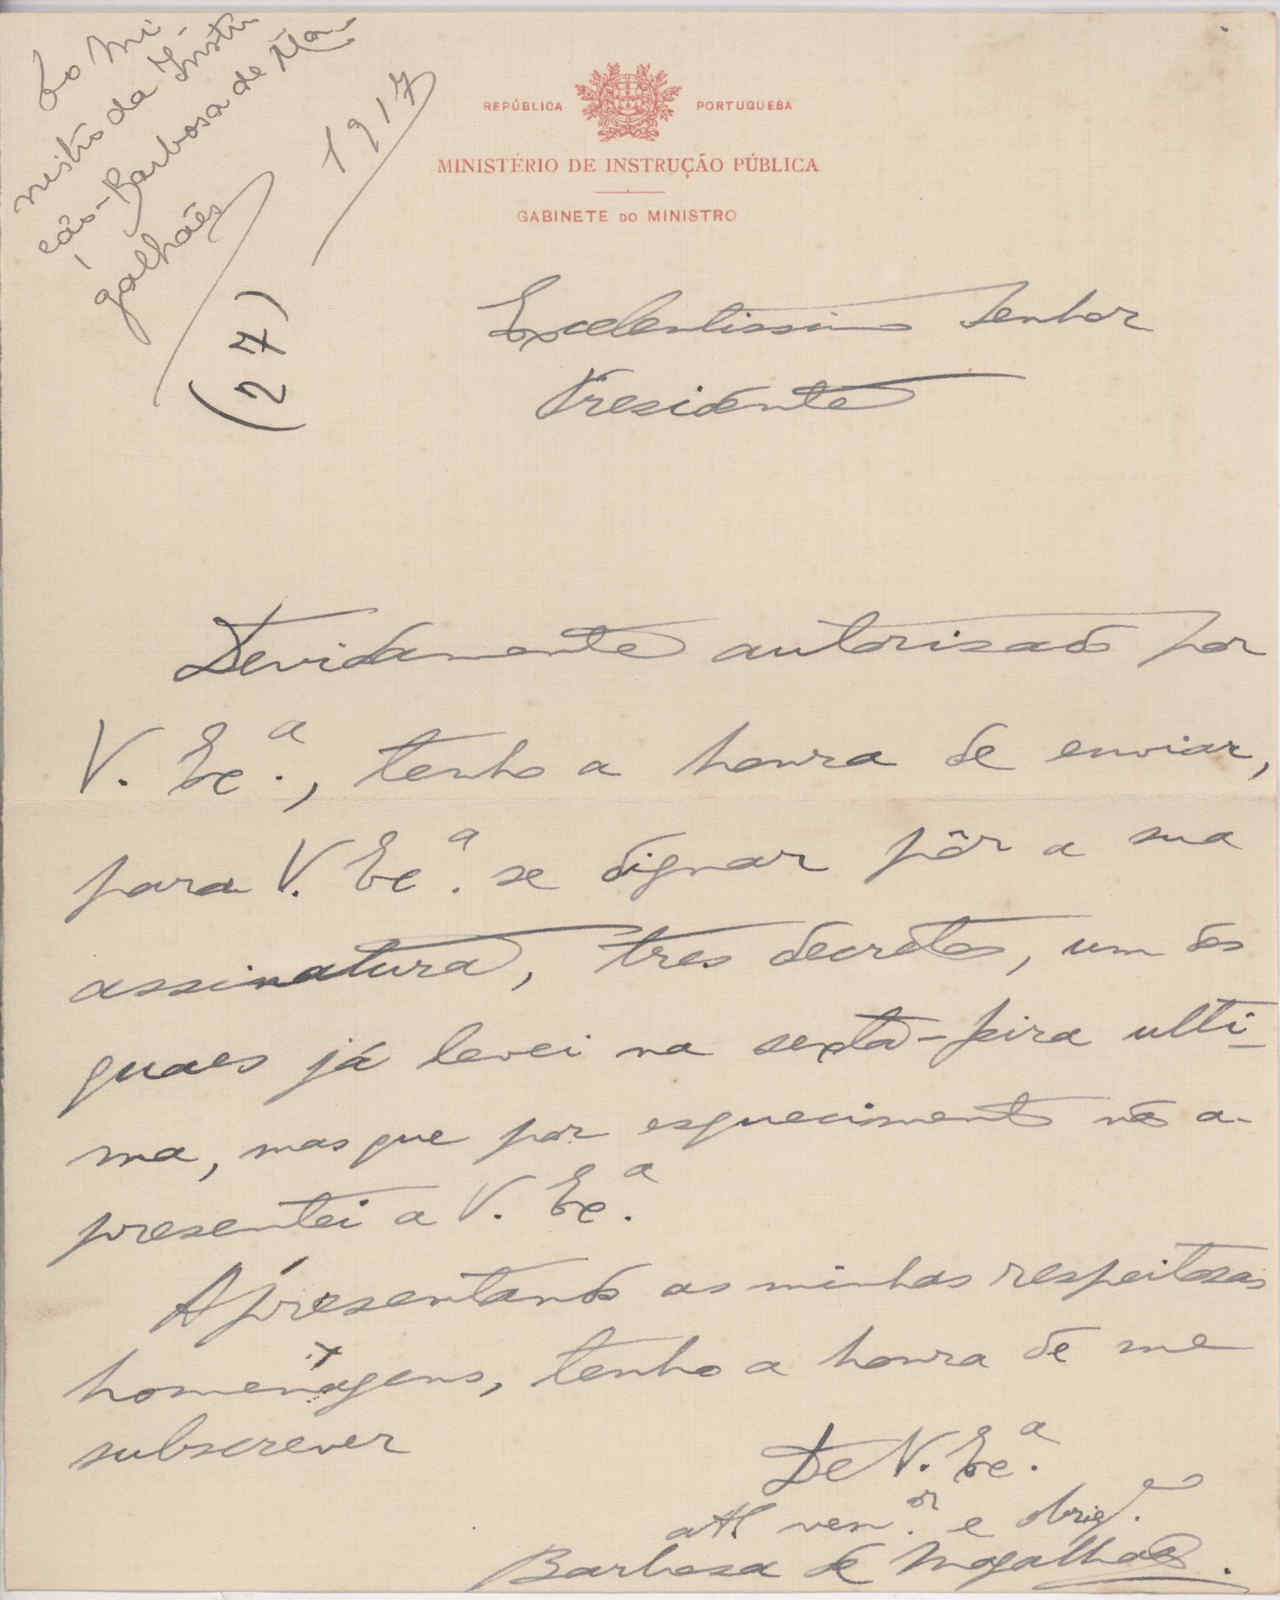 Do Mi-
nistro da Instru
ção - Barbosa de Ma-
galhães
1917
(27)
REPÚBLICA PORTUGUESA
MINISTÉRIO DE INSTRUÇÃO PÚBLICA
GABINETE DO MINISTRO
Excelentissimo Senhor
Presidente
Devidamente autorisado por
V. Ex.ª, tenho a honra de enviar,
para V. Ex.ª se dignar pôr a sua
assinatura, tres decretos, um dos
quaes já levei na sexta-feira ulti-
ma, mas que por esquecimento não a-
presentei a V. Ex.ª
Apresentando as minhas respeitosas
homenagens, tenho a honra de me
subscrever
De V. Ex.ª
att. ven.or e obrig.o
Barbosa de Magalhães.